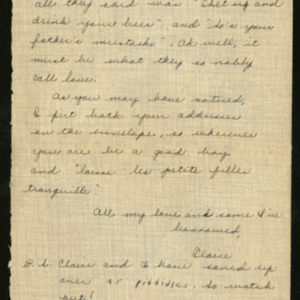 all they said was "Shet up and
drink your beer" and "So's your
father's mustache". Ah well, it
must be what they so nobly
call love.
As you may have noticed,
I put both your addresses
on the envelope, so wherever
you are be a good boy
and "laisse les petite filles
tranquille"
All my love and some I've
borrowed,
Claire
P.S. Claire and I have saved up
over 25 so watch
out!